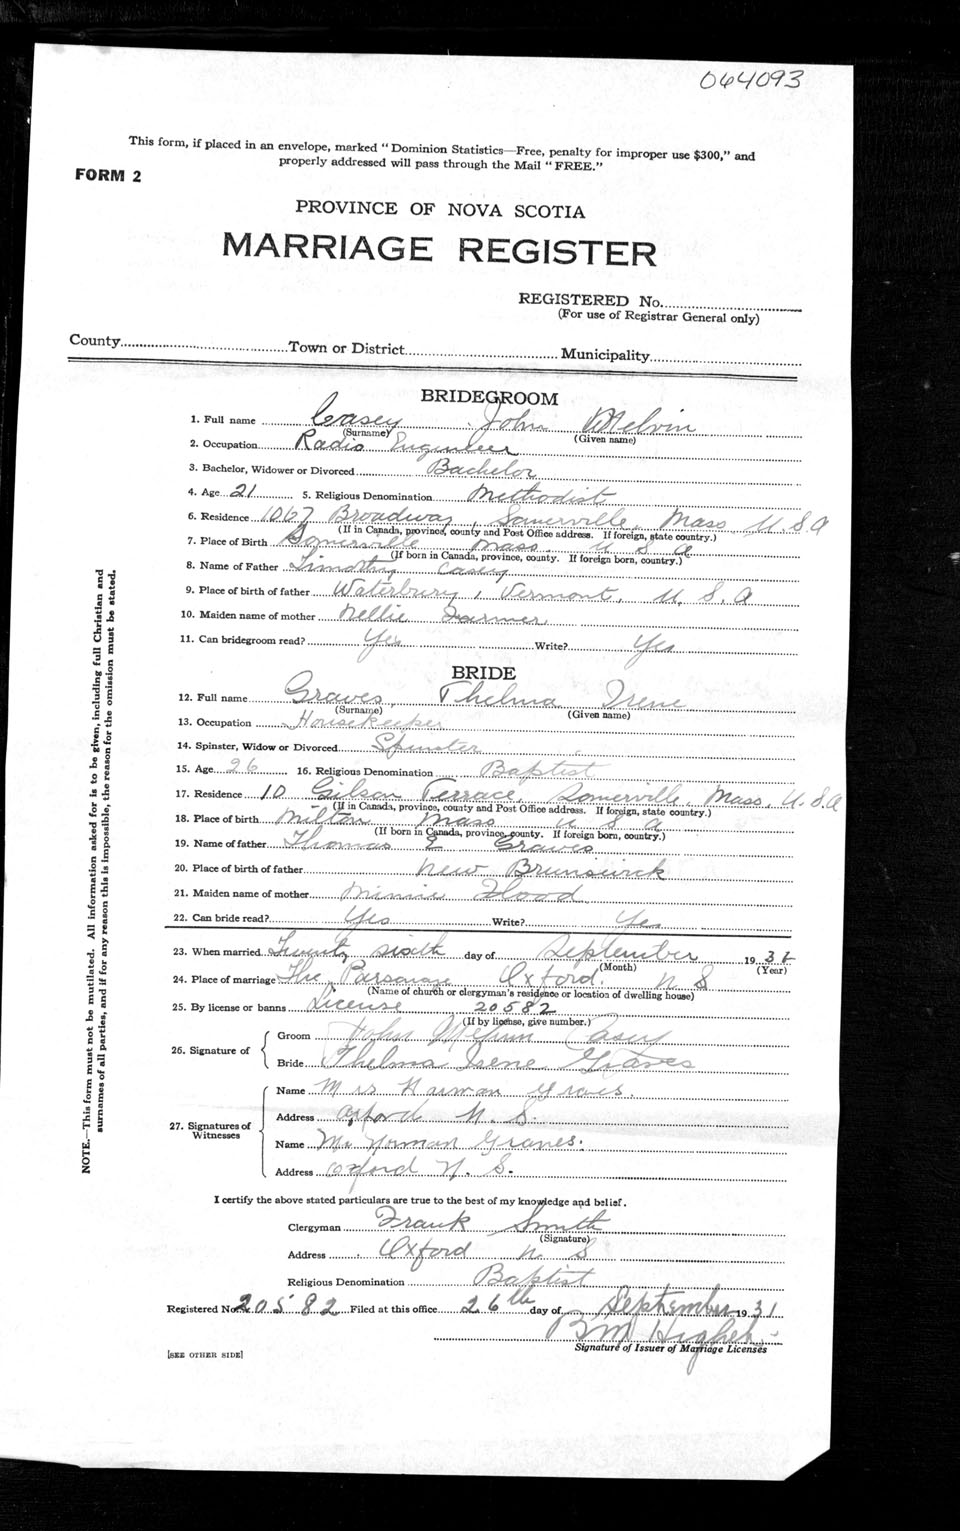 064093
This form, if placed in an envelope, marked "Dominion Statistics—Free, penalty for improper use $300," and
properly addressed will pass through the Mail "FREE."
FORM 2
PROVINCE OF NOVA SCOTIA
MARRIAGE REGISTER
REGISTERED No.
(For use of Registrar General only)
County Town or District Municipality
BRIDEGROOM
1. Full name Casey John Melvin
(Surname) (Given name)
2. Occupation Radio Engineer
3. Bachelor, Widower or Divorced Bachelor
4. Age 21 5. Religious Denomination Methodist
6. Residence 1067 Broadway, Somerville, Mass, U.S.A
(If in Canada, province, county and Post Office address. If foreign, state country.)
7. Place of Birth Somerville Mass. U S A
(If born in Canada, province, county. If foreign born, country.)
8. Name of Father Timothy Casey
9. Place of birth of father Waterbury, Vermont, U.S.A
10. Maiden name of mother Nellie Farmer
11. Can bridegroom read? Yes Write? Yes
BRIDE
12. Full name Graves Thelma Irene
(Surname) (Given name)
13. Occupation Housekeeper
14. Spinster, Widow or Divorced Spinster
15. Age 26 16. Religious Denomination Baptist
17. Residence 10 Gilson Terrace, Somerville, Mass. U.S.A
(If in Canada, province, county and Post Office address. If foreign, state country.)
18. Place of birth Milton Mass U S A
(If born in Canada, province, county. If foreign born, country.)
19. Name of father Thomas E Graves
20. Place of birth of father New Brunswick
21. Maiden name of mother Minnie Flood
22. Can bride read? Yes Write? Yes
23. When married Twenty sixth day of September 1931
(Month) (Year)
24. Place of marriage The Parsonage Oxford. N S
(Name of church or clergyman's residence or location of dwelling house)
25. By license or banns License 20582
(If by license, give number.)
26. Signature of
Groom John Melvin Casey
Bride Thelma Irene Graves
27. Signatures of Witnesses
Name Mrs Graves.
Address Oxford N. S.
Name Mr Norman Graves.
Address Oxford N. S.
I certify the above stated particulars are true to the best of my knowledge and belief.
Clergyman Frank Smith
(Signature)
Address Oxford N S
Religious Denomination Baptist
Registered No. 20582 Filed at this office 26th day of September 1931
BM Hughes
Signature of Issuer of Marriage Licenses
[SEE OTHER SIDE]
NOTE.—This form must not be mutilated. All information asked for is to be given, including full Christian and
surnames of all parties, and if for any reason this is impossible, the reason for the omission must be stated.